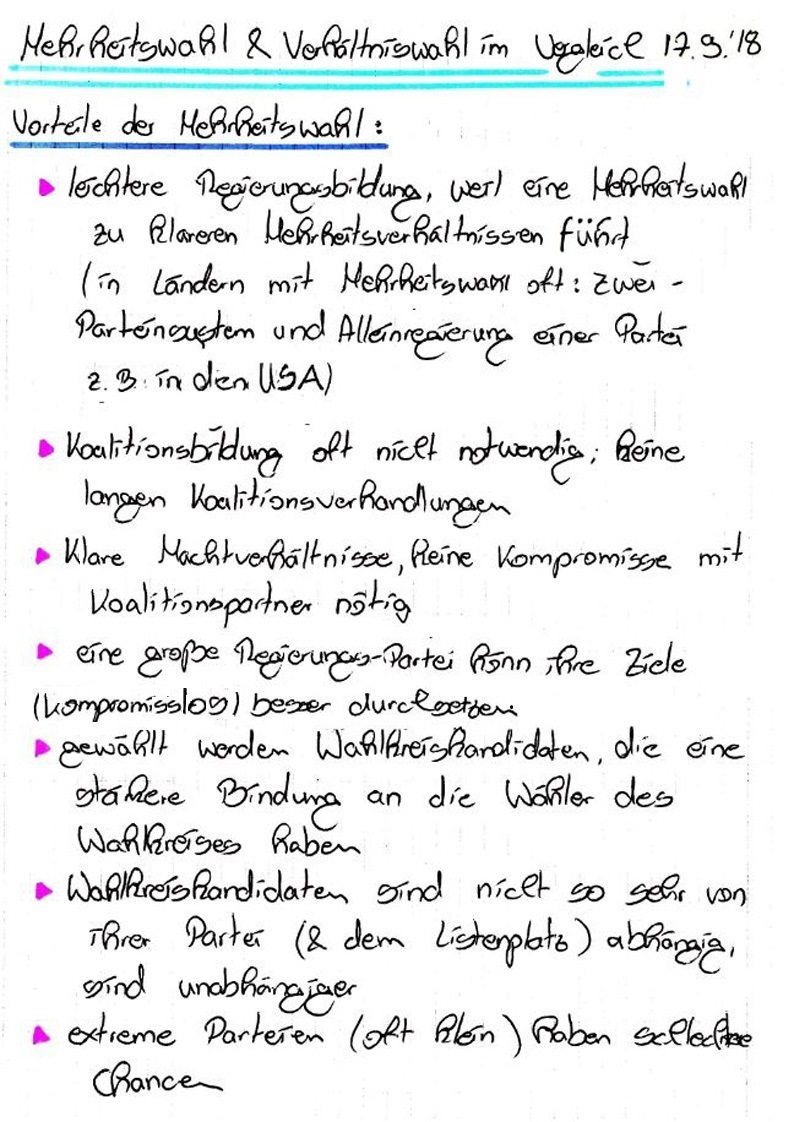 Mehrheitswahl & Verhältniswahl im Vergleich 17.9.'18
Vorteile der Mehrheitswahl:
leichtere Regierungsbildung, weil eine Mehrheitswahl
zu klareren Mehrheitsverhältnissen führt
(in Ländern mit Mehrheitswahl oft: Zwei-
Parteinsystem und Alleinregierung einer Partei
z.B. in den USA)
Koalitionsbildung oft nicht notwendig; keine
langen Koalitionsverhandlungen
Klare Machtverhältnisse, keine Kompromisse mit
Koalitionspartner nötig
eine große Regierungs-Partei kann ihre Ziele
(kompromisslos) besser durchsetzen
gewählt werden Wahlkreiskandidaten, die eine
stärkere Bindung an die Wähler des
Wahlkreises haben
Wahlkreiskandidaten sind nicht so sehr von
ihrer Partei (& dem Listenplatz) abhängig,
sind unabhängiger
extreme Parteien (oft klein) haben schlechte
Chancen